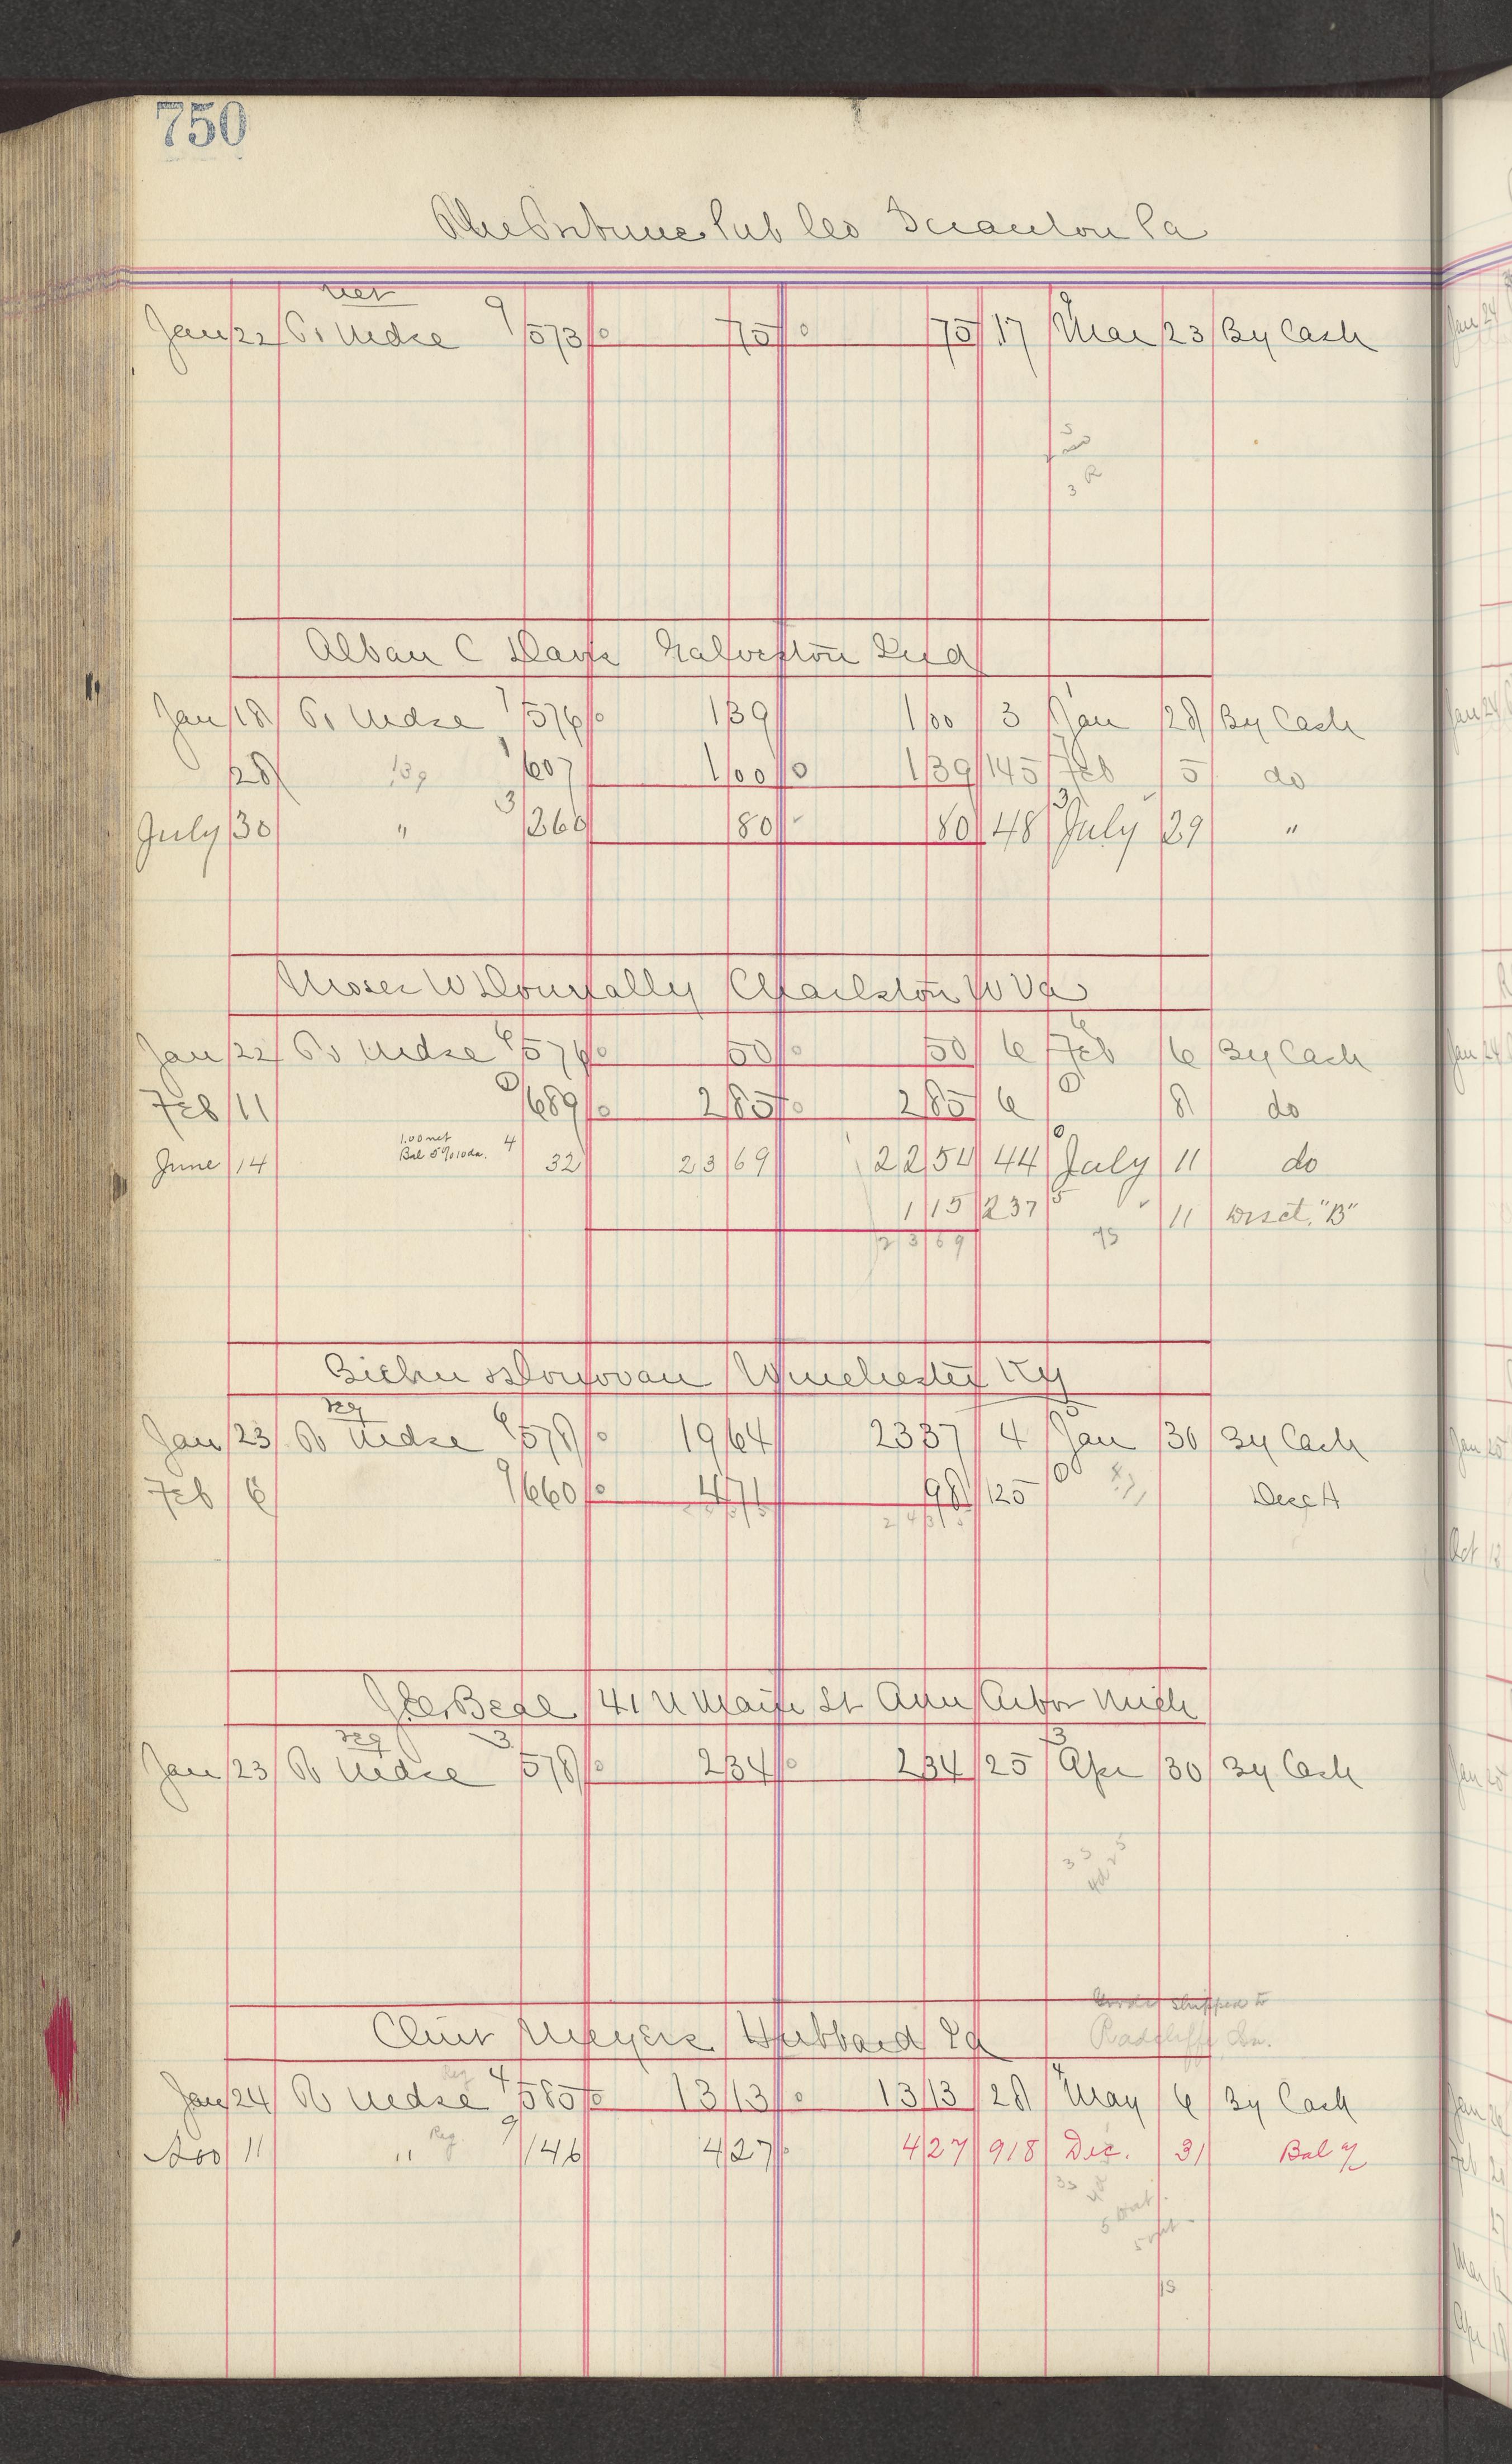 750
The Tribune Pub Co Scranton Pa
net
Jan 22 To Mdse 9/573 75 75 17 Mar 23 By Cash
Alban C Davis Galveston Ind
Jan 18 To Mdse 7/576 1 39 1 00 3 Jan 28 By Cash
28 139 1/607 1 00 1 39 145 Feb 5 do
July 30 " 3/260 80 80 48 July 29 "
Moses W Donnally Charleston W Va
Jan 22 To Mdse 6/576 50 50 6 Feb 6 By Cash
Feb 11 689 2 85 2 85 6 8 do
1.00 net
Bal 5% 10 da.
June 14 4 32 23 69 22 54 44 July 11 do
1 15 237 11 Disct. "B"
23 69
Donovan Winchester Ky
reg
Jan 23 To Mdse 6/578 19 64 23 37 4 Jan 30 By Cash
Feb 6 9/660 4 71 98 125 Disc A
J.C. Beal 41 N Main St Ann Arbor Mich
reg
Jan 23 To Mdse 3 578 2 34 2 34 25 Apr 30 By Cash
Goods shipped to
Radcliffe Ia.
Clint Meyers Hubbard Ia
Reg
Jan 24 To Mdse 4/585 13 13 13 13 28 May 6 By Cash
Nov 11 " Reg. 9/146 4 27 4 27 918 Dec. 31 Bal